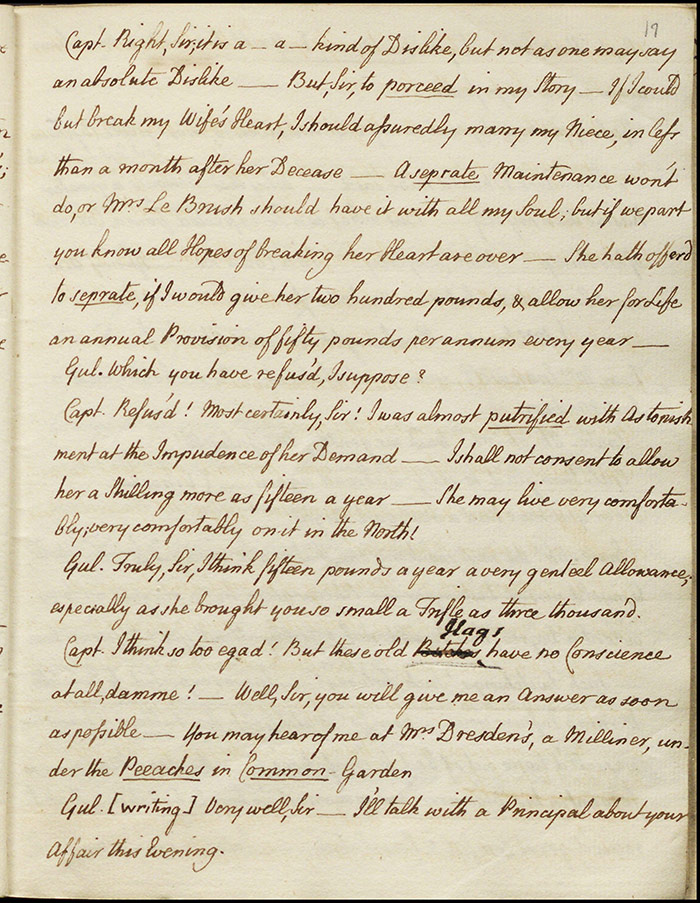 17
Capt. Right, Sir, it is a — a — kind of Dislike, but not as one may say
an absolute Dislike — But, Sir, to porceed in my Story — If I could
but break my Wife's Heart, I should assuredly marry my Niece, in less
than a month after her Decease — A seprate Maintenance won't
do, or Mrs Le Brush should have it with all my Soul; but if we part
you know all Hopes of breaking her Heart are over — She hath offer'd
to seprate, if I would give her two hundred pounds, & allow her for Life
an annual Provision of fifty pounds per annum every year —
Gul. Which you have refus'd, I suppose?
Capt. Refus'd! Most certainly, Sir! I was almost putrified with Astonish
ment at the Impudence of her Demand — I shall not consent to allow
her a Shilling more as fifteen a year — She may live very comforta-
bly; very comfortably on it in the North!
Gul. Truly, Sir, I think fifteen pounds a year a very genteel Allowance;
especially as she brought you so small a Trifle as three thousand.
Hags
Capt. I think so too egad! But these old Bitches have no Conscience
at all, damme! — Well, Sir, you will give me an Answer as soon
as possible — You may hear of me at Mrs Dresden's, a Milliner, un-
der the Peeaches in Common-Garden
Gul. [writing] Very well, Sir — I'll talk with a Principal about your
Affair this Evening.